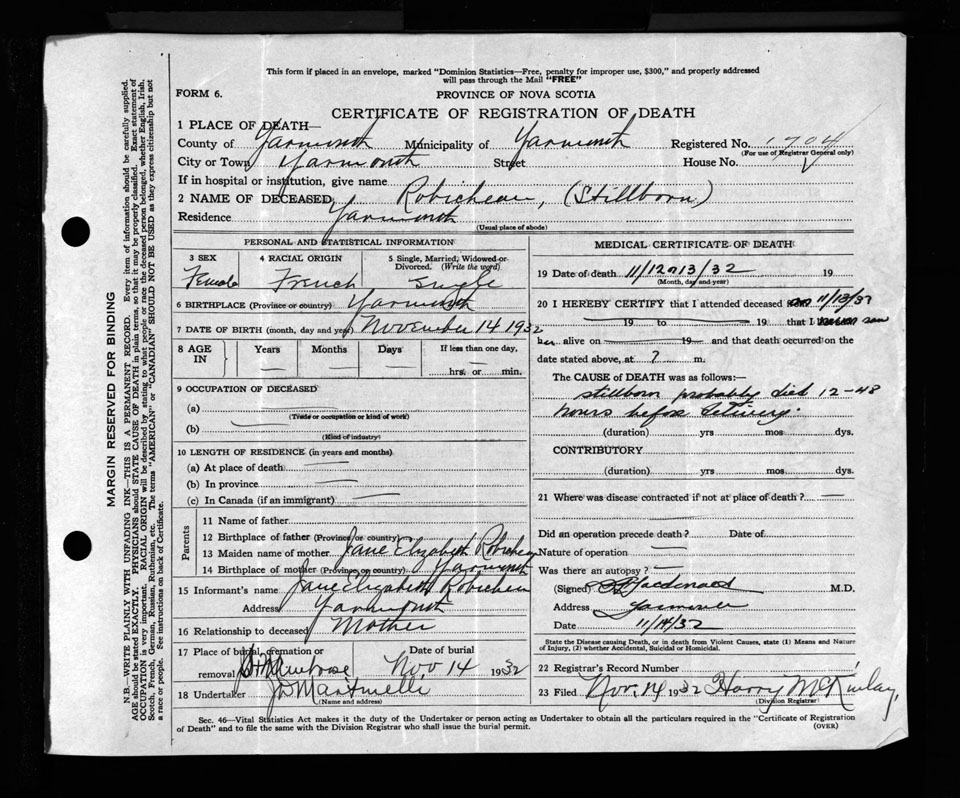 This form if placed in an envelope, marked "Dominion Statistics—Free, penalty for improper use, $300," and properly addressed
will pass through the Mail "FREE"
FORM 6.
PROVINCE OF NOVA SCOTIA
CERTIFICATE OF REGISTRATION OF DEATH
1 PLACE OF DEATH—
County of Yarmouth Municipality of Yarmouth Registered No. 1704
(For use of Registrar General only)
City or Town Yarmouth Street House No.
If in hospital or institution, give name
2 NAME OF DECEASED Robicheau, (Stillborn)
Residence Yarmouth
(Usual place of abode)
PERSONAL AND STATISTICAL INFORMATION
3 SEX 4 RACIAL ORIGIN 5 Single, Married, Widowed or Divorced. (Write the word)
Female French Single
6 BIRTHPLACE (Province or country) Yarmouth
7 DATE OF BIRTH (month, day and year) November 14 1932
8 AGE IN Years Months Days If less than one day,
hrs. or min.
9 OCCUPATION OF DECEASED
(a)
(Trade or occupation or kind of work)
(b)
(Kind of industry)
10 LENGTH OF RESIDENCE (in years and months)
(a) At place of death
(b) In province
(c) In Canada (if an immigrant)
Parents
11 Name of father
12 Birthplace of father (Province or country)
13 Maiden name of mother Jane Elizabeth Robicheau
14 Birthplace of mother (Province or country) Yarmouth
15 Informant's name Jane Elizabeth Robicheau
Address Yarmouth
16 Relationship to deceased Mother
17 Place of burial, cremation or removal Date of burial
Nov 14 1932
18 Undertaker
(Name and address)
MEDICAL CERTIFICATE OF DEATH
19 Date of death 11/12 or 13/32 19
(Month, day and year)
20 I HEREBY CERTIFY that I attended deceased 11/13/32
19 to 19 that I saw
her alive on 19 and that death occurred on the
date stated above, at ? m.
The CAUSE of DEATH was as follows:
stillborn probably died 12-48
hours before delivery.
(duration) yrs mos dys.
CONTRIBUTORY
(duration) yrs mos dys.
21 Where was disease contracted if not at place of death?
Did an operation precede death? Date of
Nature of operation
Was there an autopsy?
(Signed) Macdonald M.D.
Address
Date 11/14/32
State the Disease causing Death, or in death from Violent Causes, state (1) Means and Nature
of Injury, (2) whether Accidental, Suicidal or Homicidal.
22 Registrar's Record Number
23 Filed Nov. 14 1932 Harry McKinlay,
(Division Registrar)
Sec. 46—Vital Statistics Act makes it the duty of the Undertaker or person acting as Undertaker to obtain all the particulars required in the "Certificate of Registration
of Death" and to file the same with the Division Registrar who shall issue the burial permit.
(OVER)
MARGIN RESERVED FOR BINDING
N.B.—WRITE PLAINLY WITH UNFADING INK—THIS IS A PERMANENT RECORD. Every item of information should be carefully supplied.
AGE should be stated EXACTLY. PHYSICIANS should STATE CAUSE OF DEATH in plain terms, so that it may be properly classified. Exact statement of
OCCUPATION is very important. RACIAL ORIGIN will be described by stating to what people or race the deceased person belonged, whether English, Irish,
Scotch, French, German, Russian, Ruthenian, etc. The terms "AMERICAN" or "CANADIAN" SHOULD NOT BE USED as they express citizenship but not
a race or people. See instructions on back of Certificate.